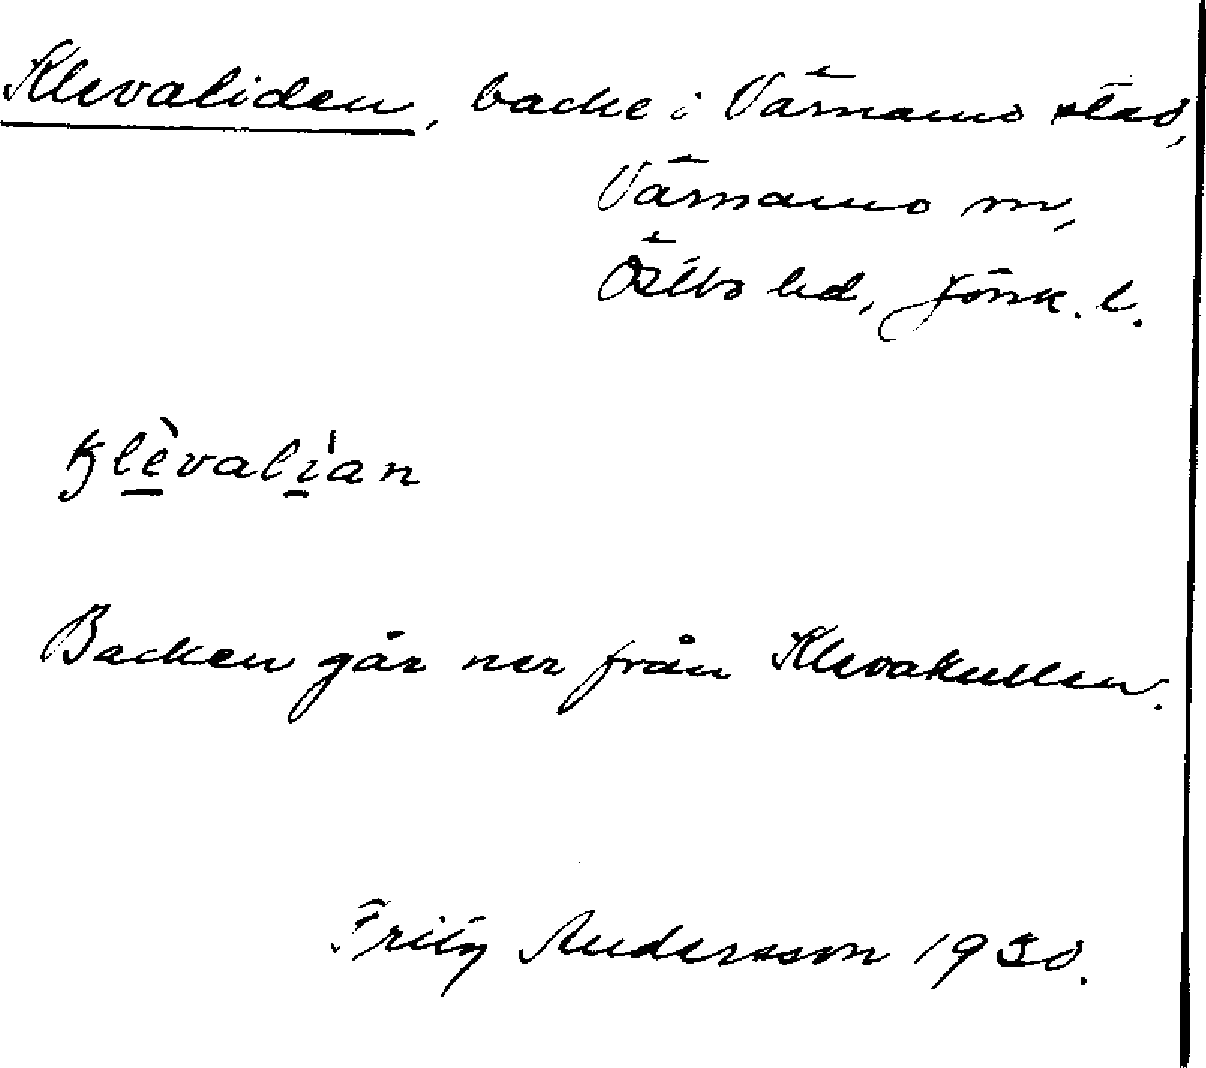 Klevaliden, backe i Värnamo stad,
Värnamo m,
Östbo hd, Jönk. l.
Klèvalían
Backen går ner från Klevakullen.
Fritz Andersson 1930.